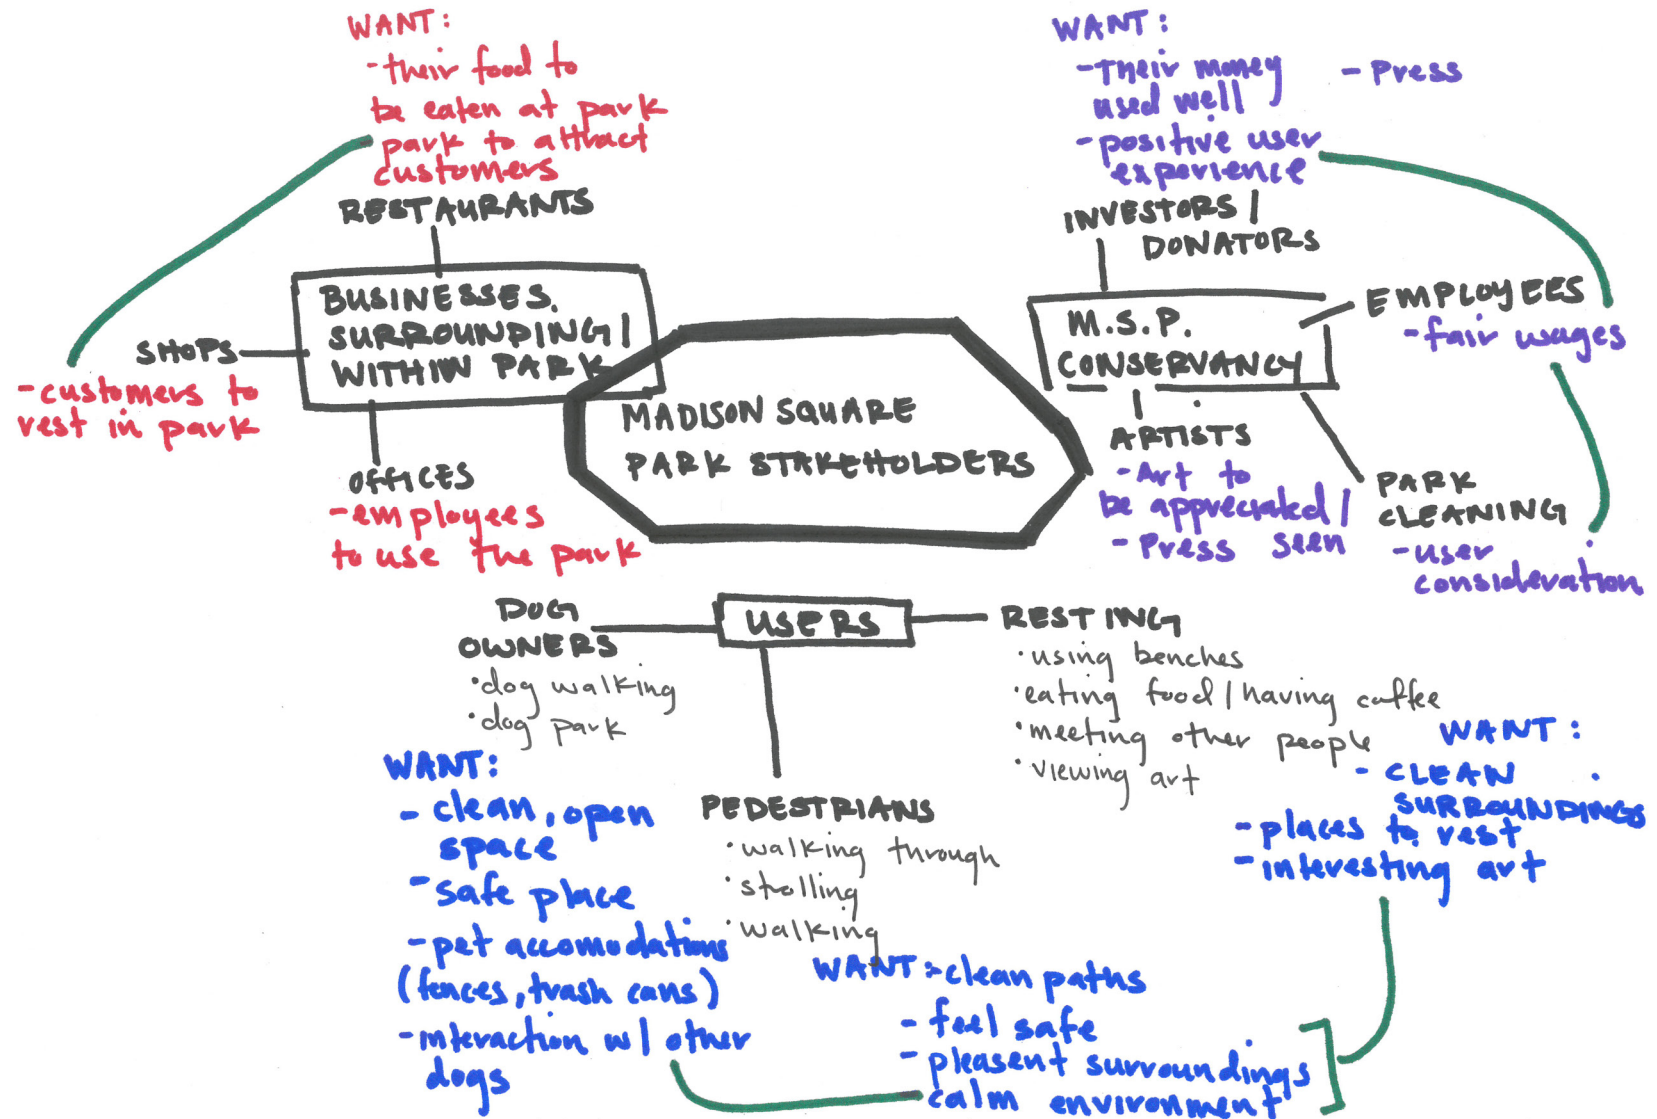 WANT:
-their food to
be eaten at park
park to attract
customers
RESTAURANTS
BUSINESSES.
SURROUNDING/
WITHIN PARK
SHOPS
-customers to
rest in park
OFFICES
-employees
to use the park
WANT:
-Their money
used well
-Press
-positive user
experience
INVESTORS/
DONATORS
M.S.P.
CONSERVANCY
EMPLOYEES
-fair wages
ARTISTS
-Art to
be appreciated/
-Press seen
PARK
CLEANING
-user
consideration
MADISON SQUARE
PARK STAKEHOLDERS
USERS
DOG
OWNERS
·dog walking
·dog park
WANT:
-clean, open
space
-safe place
-pet accomodations
(fences, trash cans)
-interaction w/ other
dogs
PEDESTRIANS
·walking through
·strolling
·walking
WANT:-clean paths
-feel safe
-pleasent surroundings
-calm environment
RESTING
·using benches
·eating food/having coffee
·meeting other people
·viewing art
WANT:
-CLEAN
SURROUNDINGS
-places to rest
-interesting art